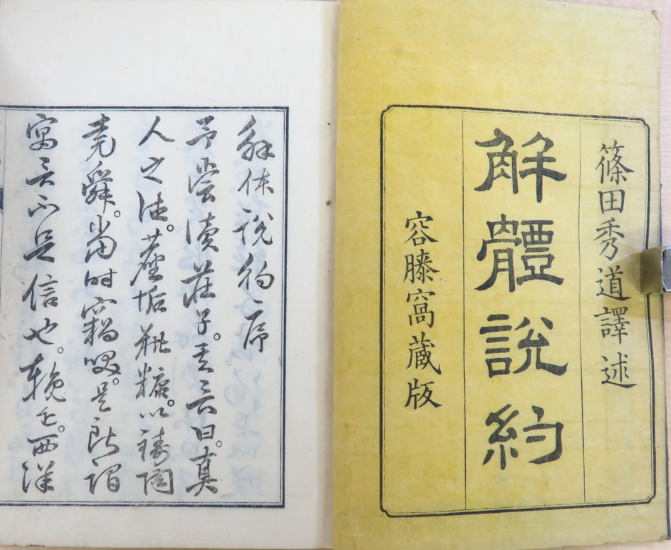 篠田秀道譯述
解體說約
容膝窩蔵版
解体說約序
予嘗讀莊子。其言曰。真
人之法。塵垢粃糠。以鑄陶
堯舜。當時竊。是所謂
寓言不足信也。輓近。西洋